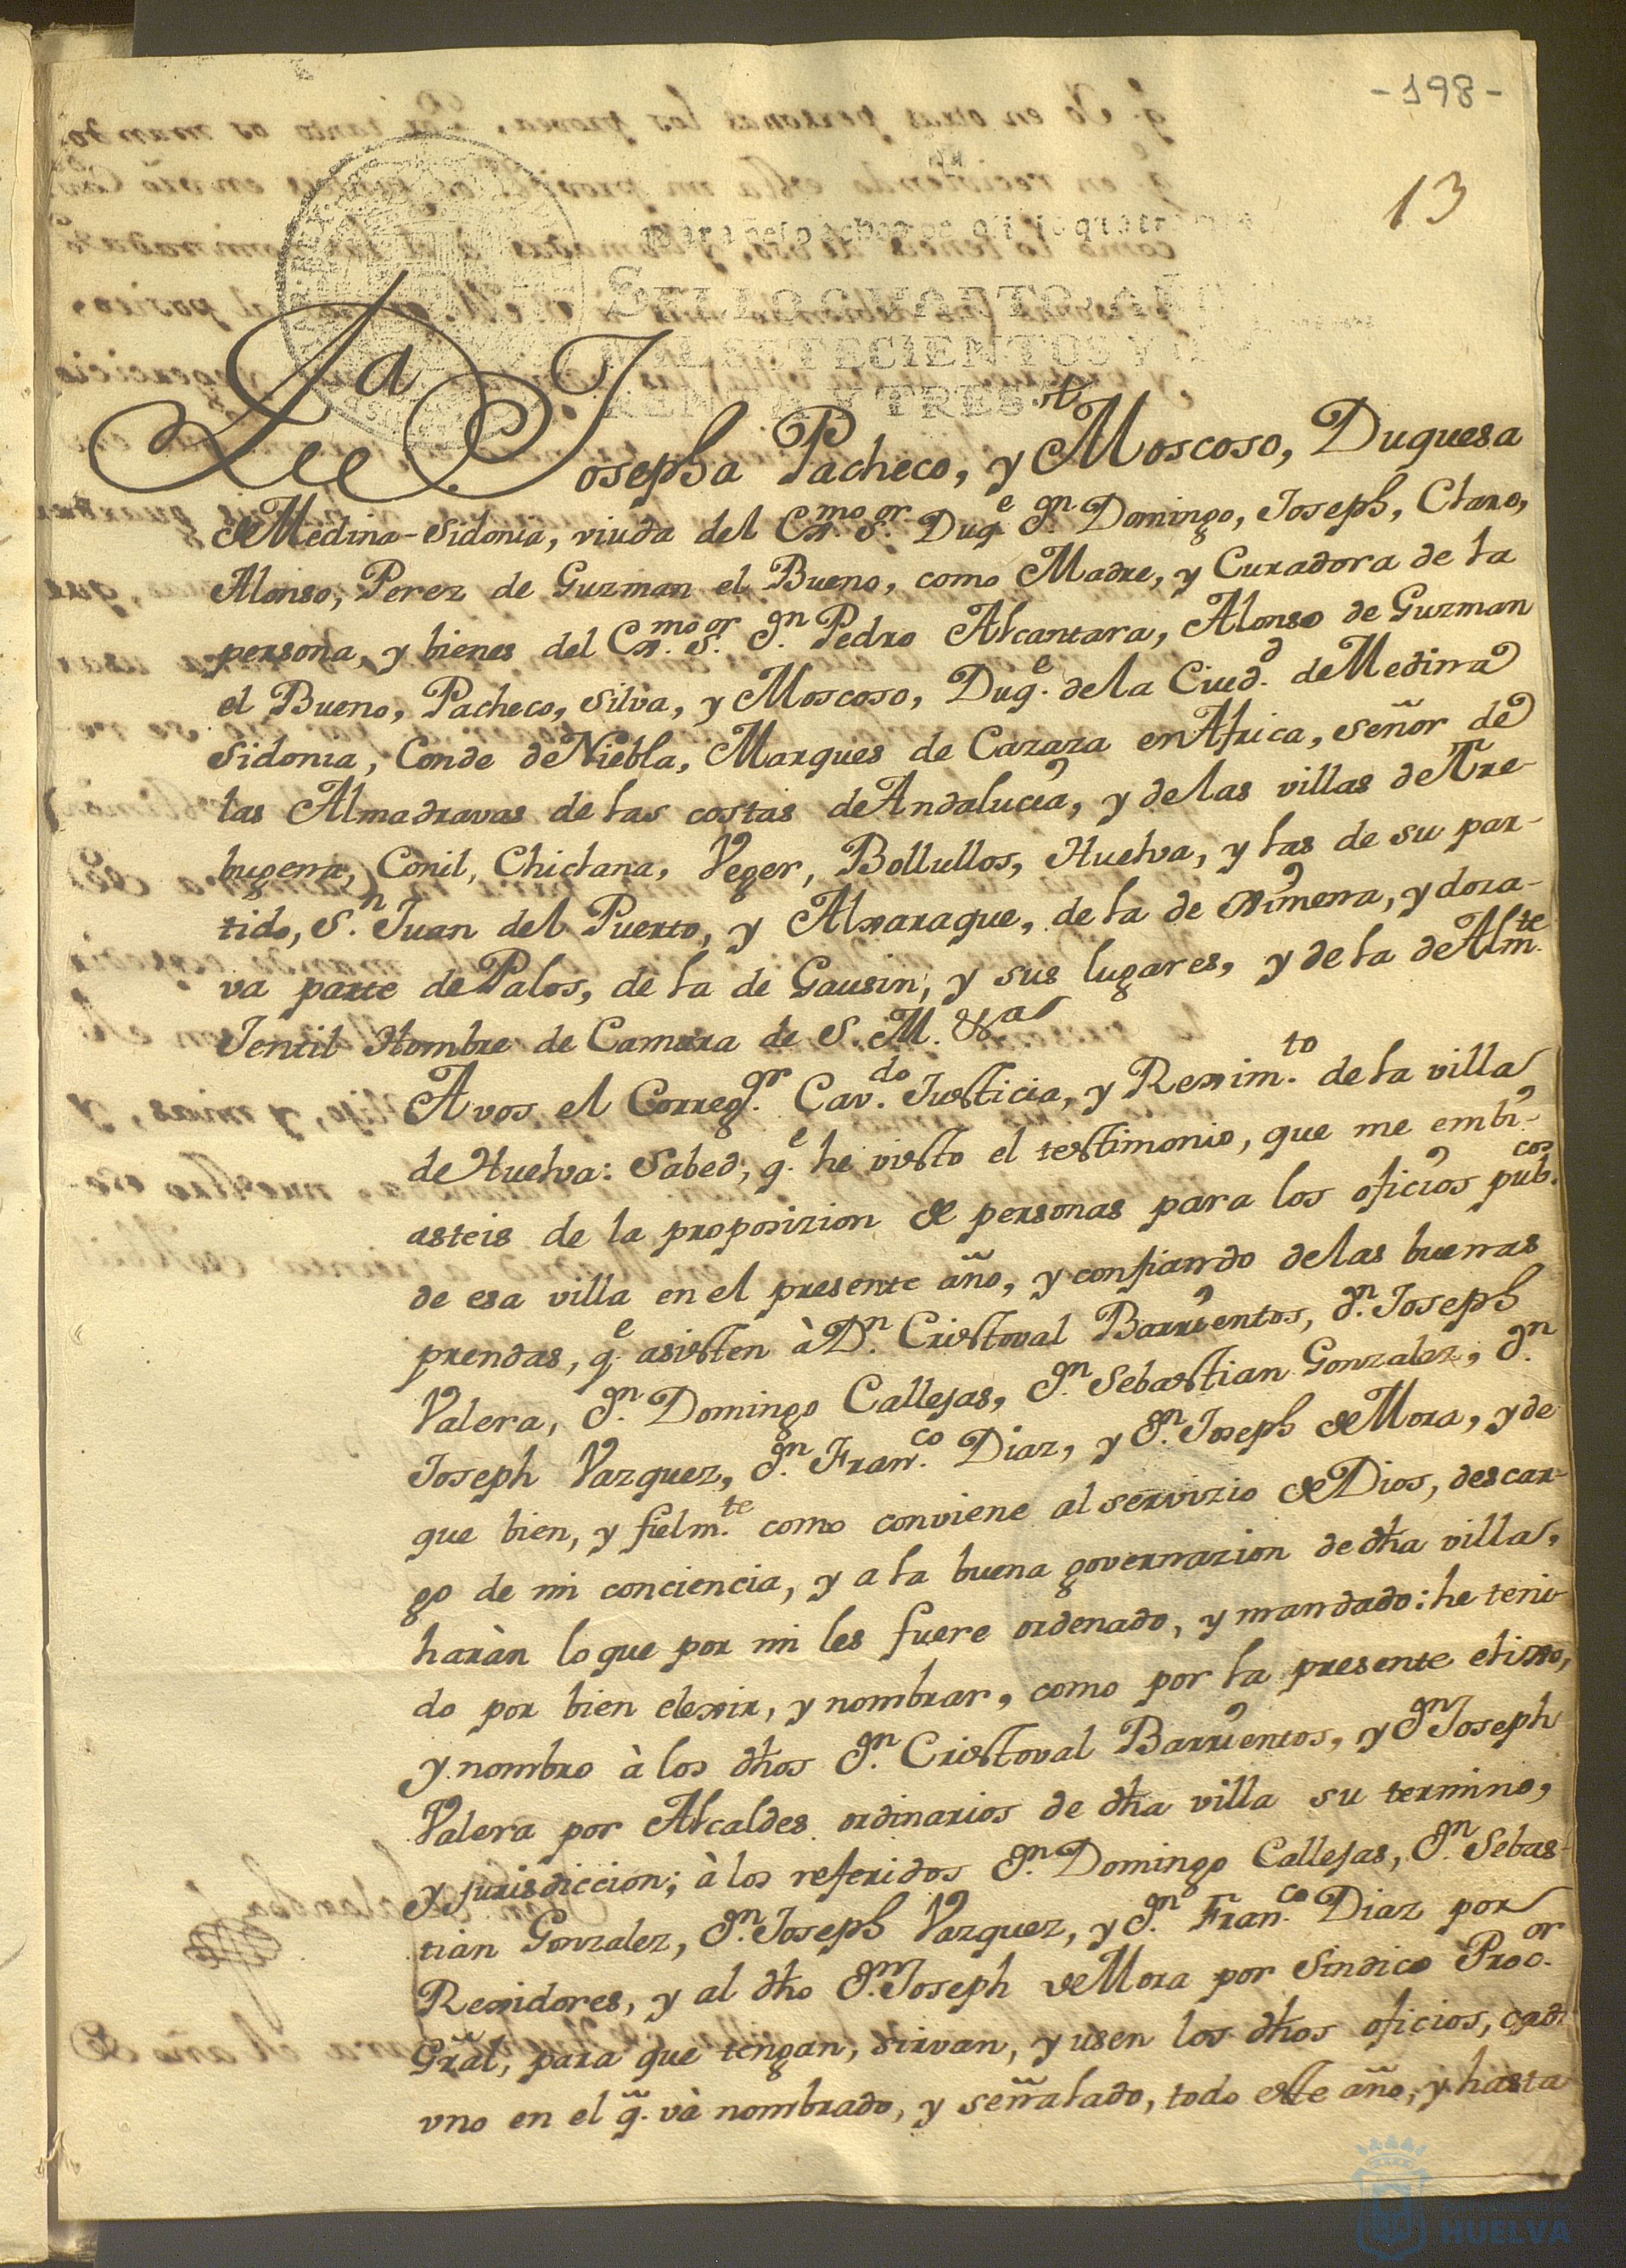 -198-
13
SELLO QUARTO, AÑO
MIL SETECIENTOS Y
RENTA Y TRES.
Josepha Pacheco, y Moscoso, Duquesa
de Medina-Sidonia, viuda del Ex.mo S.or Duq.e D.n Domingo, Joseph, Claro,
Alonso, Perez de Guzman el Bueno, como Madre, y Curadora de la
persona, y bienes del Ex.mo S.or D.n Pedro Alcantara, Alonso de Guzman
el Bueno, Pacheco, Silva, y Moscoso, Duq.e de la Ciud.d de Medina
Sidonia, Conde de Niebla, Marques de Cazaza en Africa, Señor de
las Almadravas de las costas de Andalucia, y de las villas de Tre-
bugena, Conil, Chiclana, Veger, Bollullos, Huelva, y las de su par-
tido, S.n Juan del Puerto, y Alxaraque, de la de Ximena, y doza-
va parte de Palos, de la de Gausin, y sus lugares, y de la de Alm.te
Jentil Hombre de Camara de S. M. &a
A vos el Correg.or Cav.do Justicia, y Rexim.to de la villa
de Huelva: Sabed, q.e he visto el testimonio, que me embi-
asteis de la proposizion de personas para los oficios pub.cos
de esa villa en el presente año, y confiando de las buenas
prendas, q.e asisten à D.n Cristoval Barrientos, D.n Joseph
Valera, D.n Domingo Callejas, D.n Sebastian Gonzalez, D.n
Joseph Vazquez, D.n Fran.co Diaz, y D.n Joseph de Mora, y de
que bien, y fielm.te como conviene al servizio de Dios, descar-
go de mi conciencia, y a la buena governazion de dha villa,
haràn lo que por mi les fuere ordenado, y mandado: he teni-
do por bien elexir, y nombrar, como por la presente elixo,
y nombro à los dhos D.n Cristoval Barrientos, y D.n Joseph
Valera por Alcaldes ordinarios de dha villa su termino,
y jurisdiccion; à los referidos D.n Domingo Callejas, D.n Sebas-
tian Gonzalez, D.n Joseph Vazquez, y D.n Fran.co Diaz por
Rexidores, y al dho D.n Joseph de Mora por Sindico Proc.or
Gral, para que tengan, sirvan, y usen los dhos oficios, cada
vno en el q. và nombrado, y señalado, todo este año, y hasta
HUELVA